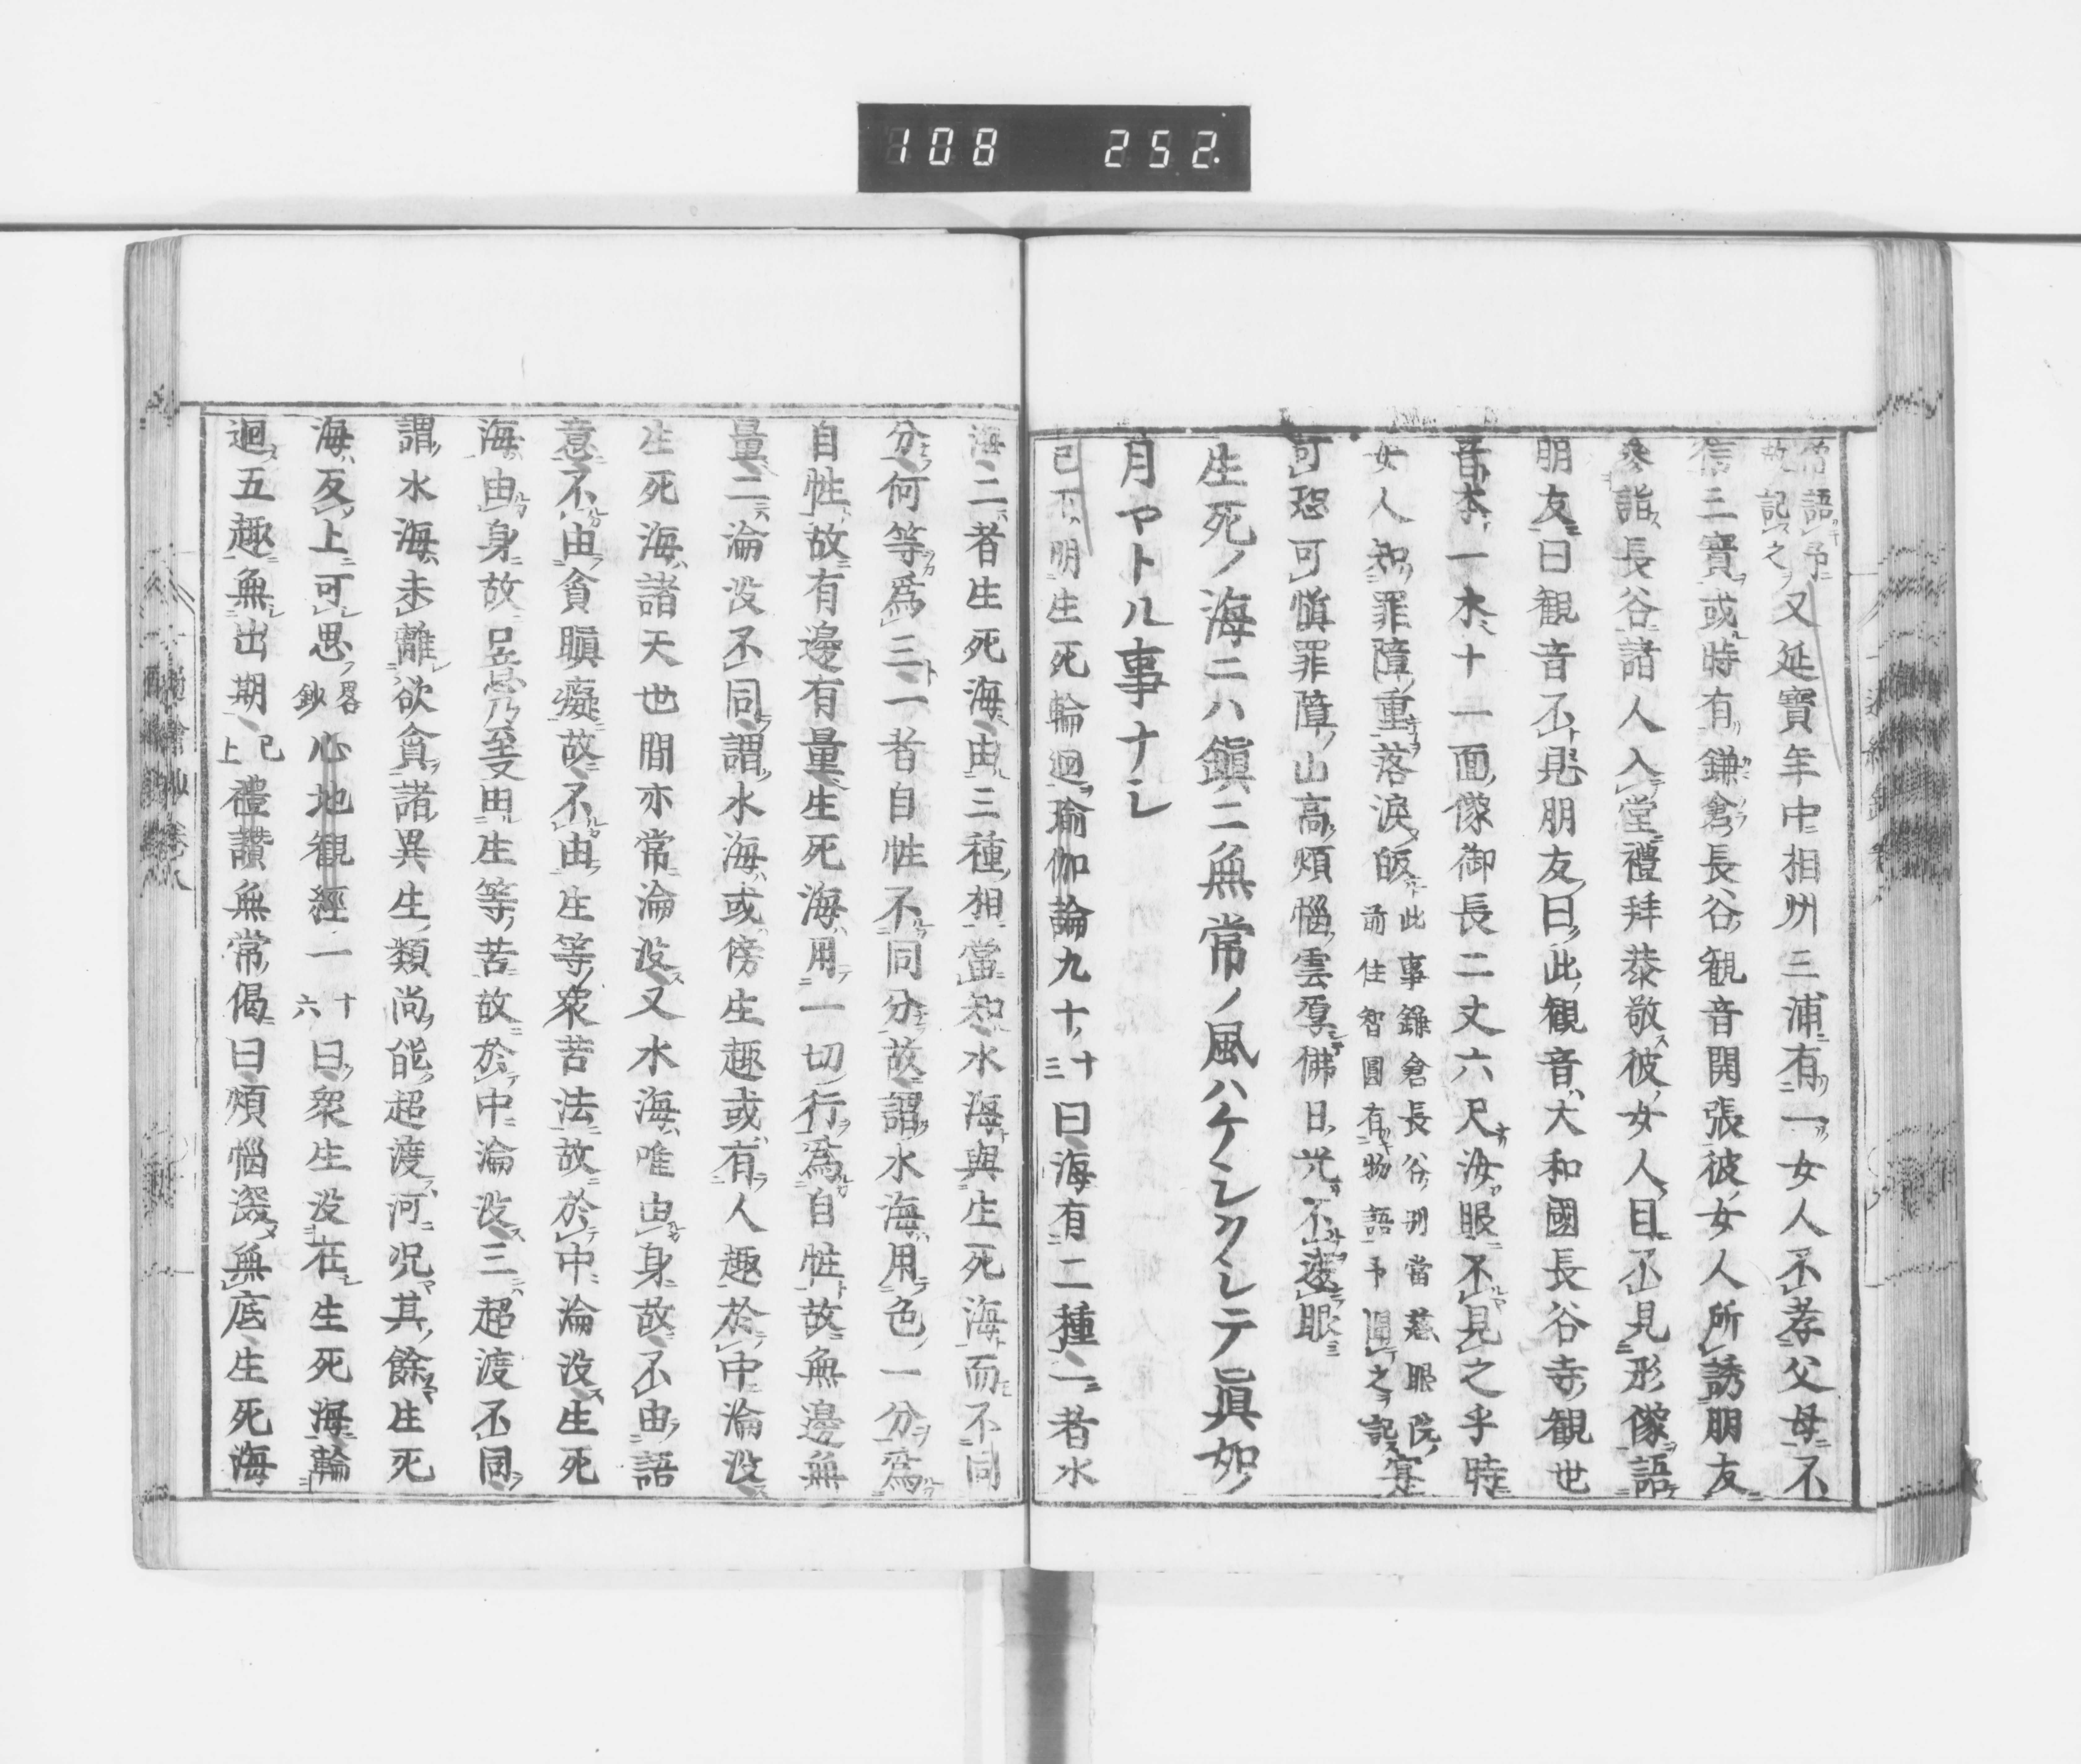 108 252
僧語予故記之又延寶年中相州三浦有一女人不孝父母不
信三寶或時有鎌倉長谷観音開張彼女人所誘朋友
参詣長谷諸人入堂禮拜恭敬彼女人目不見形像語
朋友曰観音不見朋友曰此観音大和國長谷寺観世
音本一木十一面像御長二丈六尺汝眼不見之乎時
女人知罪障重落淚皈此事鎌倉長谷別當慈眼院前住智圓有物語予聞之記寔
可恐可愼罪障山高煩惱雲厚佛日光不遮眼
生死ノ海ニハ鎭ニ無常ノ風ハケシクシテ眞如ノ
月ヤトル事ナシ
已下明生死輪迴瑜伽論九十十三曰海有二種一者水
海二者生死海由三種相當知水海與生死海而不同
分何等爲三一者自性不同分故謂水海用色一分爲
自性故有邊有量生死海用一切行爲自性故無邊無
量二淪没不同謂水海或傍生趣或有人趣於中淪没
生死海諸天也間亦常淪没又水海唯由身故不由語
意不由貪瞋癡故不由生等衆苦法故於中淪没生死
海由身故乃至由生等苦故於中淪没三超渡不同
謂水海未離欲貪諸異生類尚能超渡河況其餘生死
海反上可思畧鈔心地観經一十六曰衆生没在生死海輪
迴五趣無出期已上禮讚無常偈曰煩惱深無底生死海